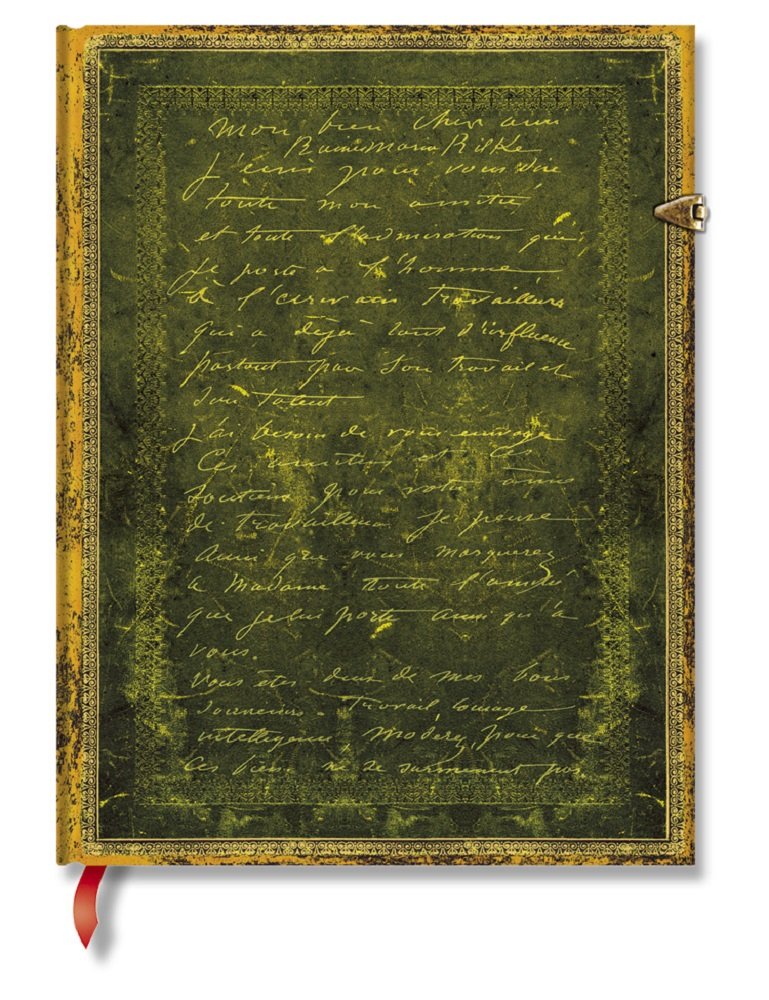 Mon bien cher ami
Rainer Maria Rilke
J'écris pour vous dire
toute mon amitié
et toute l'admiration que
je porte a l'homme
à l'ecrivain travailleurs
qui a déjà tant d'influence
partout par son travail et
son talent
J'ai besoin de vous envoyer
Ces amitiés et
soutiens pour votre
de travailleur Je pense
Aussi que vous marquerez
a Madame toute l'amitié
que je lui porte aussi qu'à
vous.
Vous êtes deux de mes bons
Travail Courage
intelligence modérez pour que
ces biens ne se surmenent pas